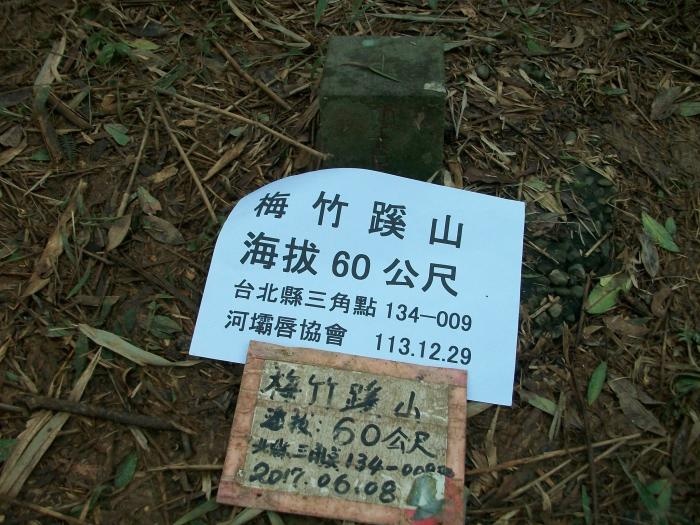 梅竹蹊山
海拔60公尺
台北縣三角點134-009
河壩唇協會 113.12.29
梅竹蹊山
海拔:60公尺
北縣三角點134-009
2017.06.08